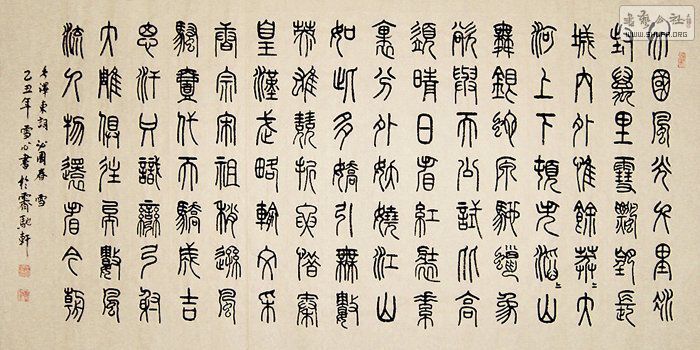 北國風光千里冰
封萬里雪飄望長
城内外惟餘莽々大
河上下頓失滔々山
舞銀蛇原馳蠟象
欲與天公試比高
須晴日看紅裝素
裹分外妖嬈江山
如此多嬌引無數
英雄競折腰惜秦
皇漢武略輸文采
唐宗宋祖稍遜風
騷壹代天驕成吉
思汗只識彎弓射
大雕俱往矣數風
流人物還看今朝
毛澤東詞 沁園春 雪
己丑年 雪心書於軒
書藝公社
WWW.SHUFA.ORG